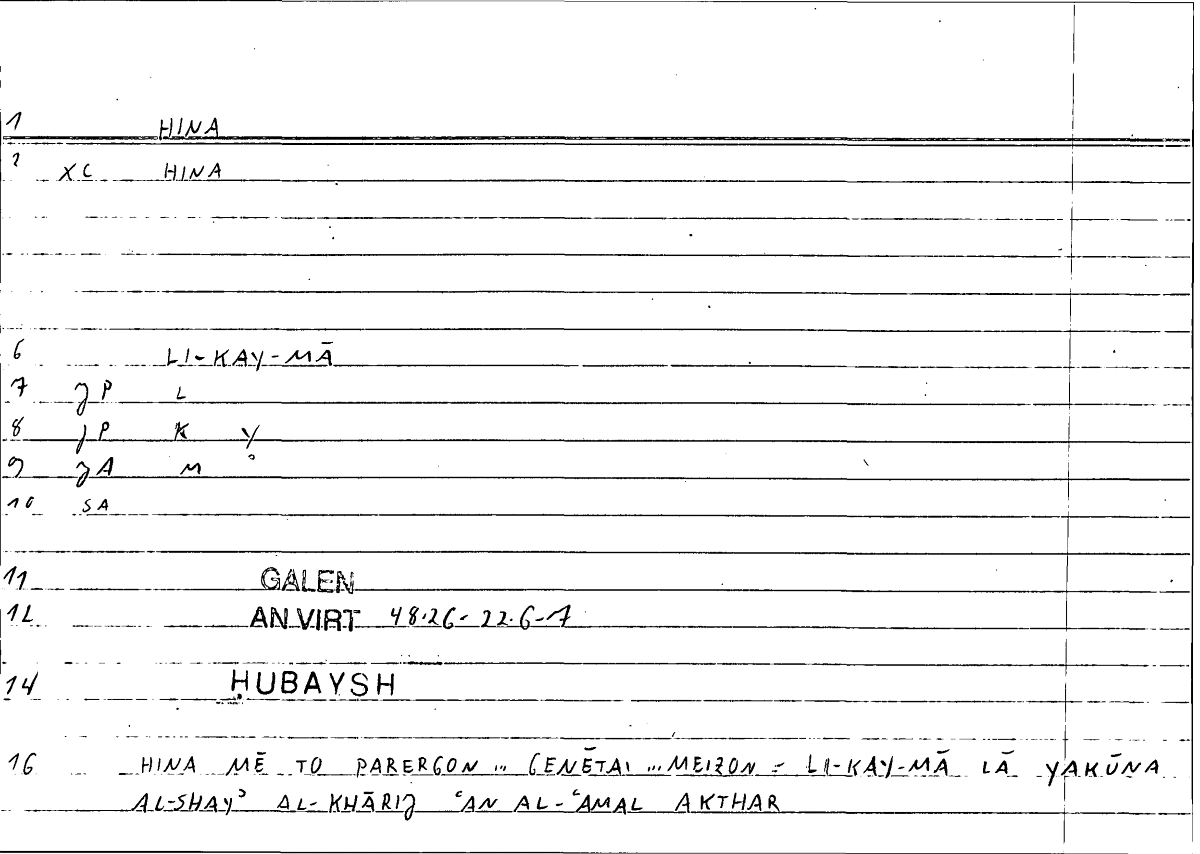 1 HINA
2 XC HINA
6 LI-KAY-MĀ
7 JP L
8 JP K Y
9 JA M
10 SA
11 GALEN
12 AN VIRT 48.26 - 22.6-7
14 ḤUBAYSH
16 HINA MĒ TO PARERGON ... GENĒTAI ... MEIZON = LI-KAY-MĀ LĀ YAKŪNA
AL-SHAYʾ AL-KHĀRIJ ʿAN AL-ʿAMAL AKTHAR